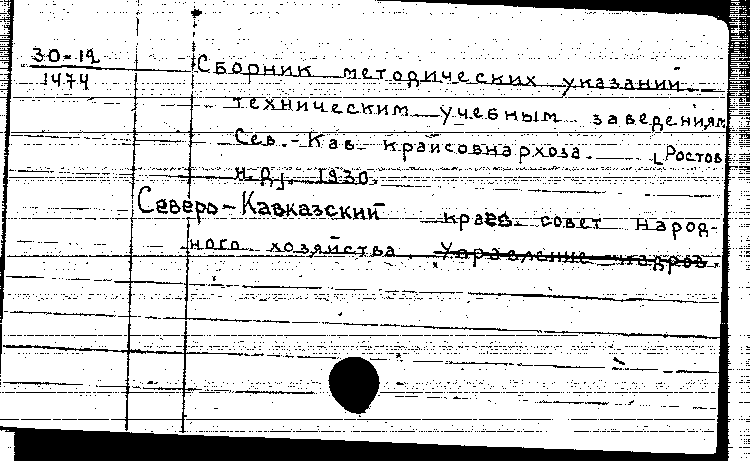 30-12
1474
Сборник методических указаний
техническим учебным заведениям
Сев.-Кав крайсовнархоза. [Ростов
н.Д]. 1930.
Северо-Кавказский краев. совет народ-
ного хозяйства. Управление кадров.